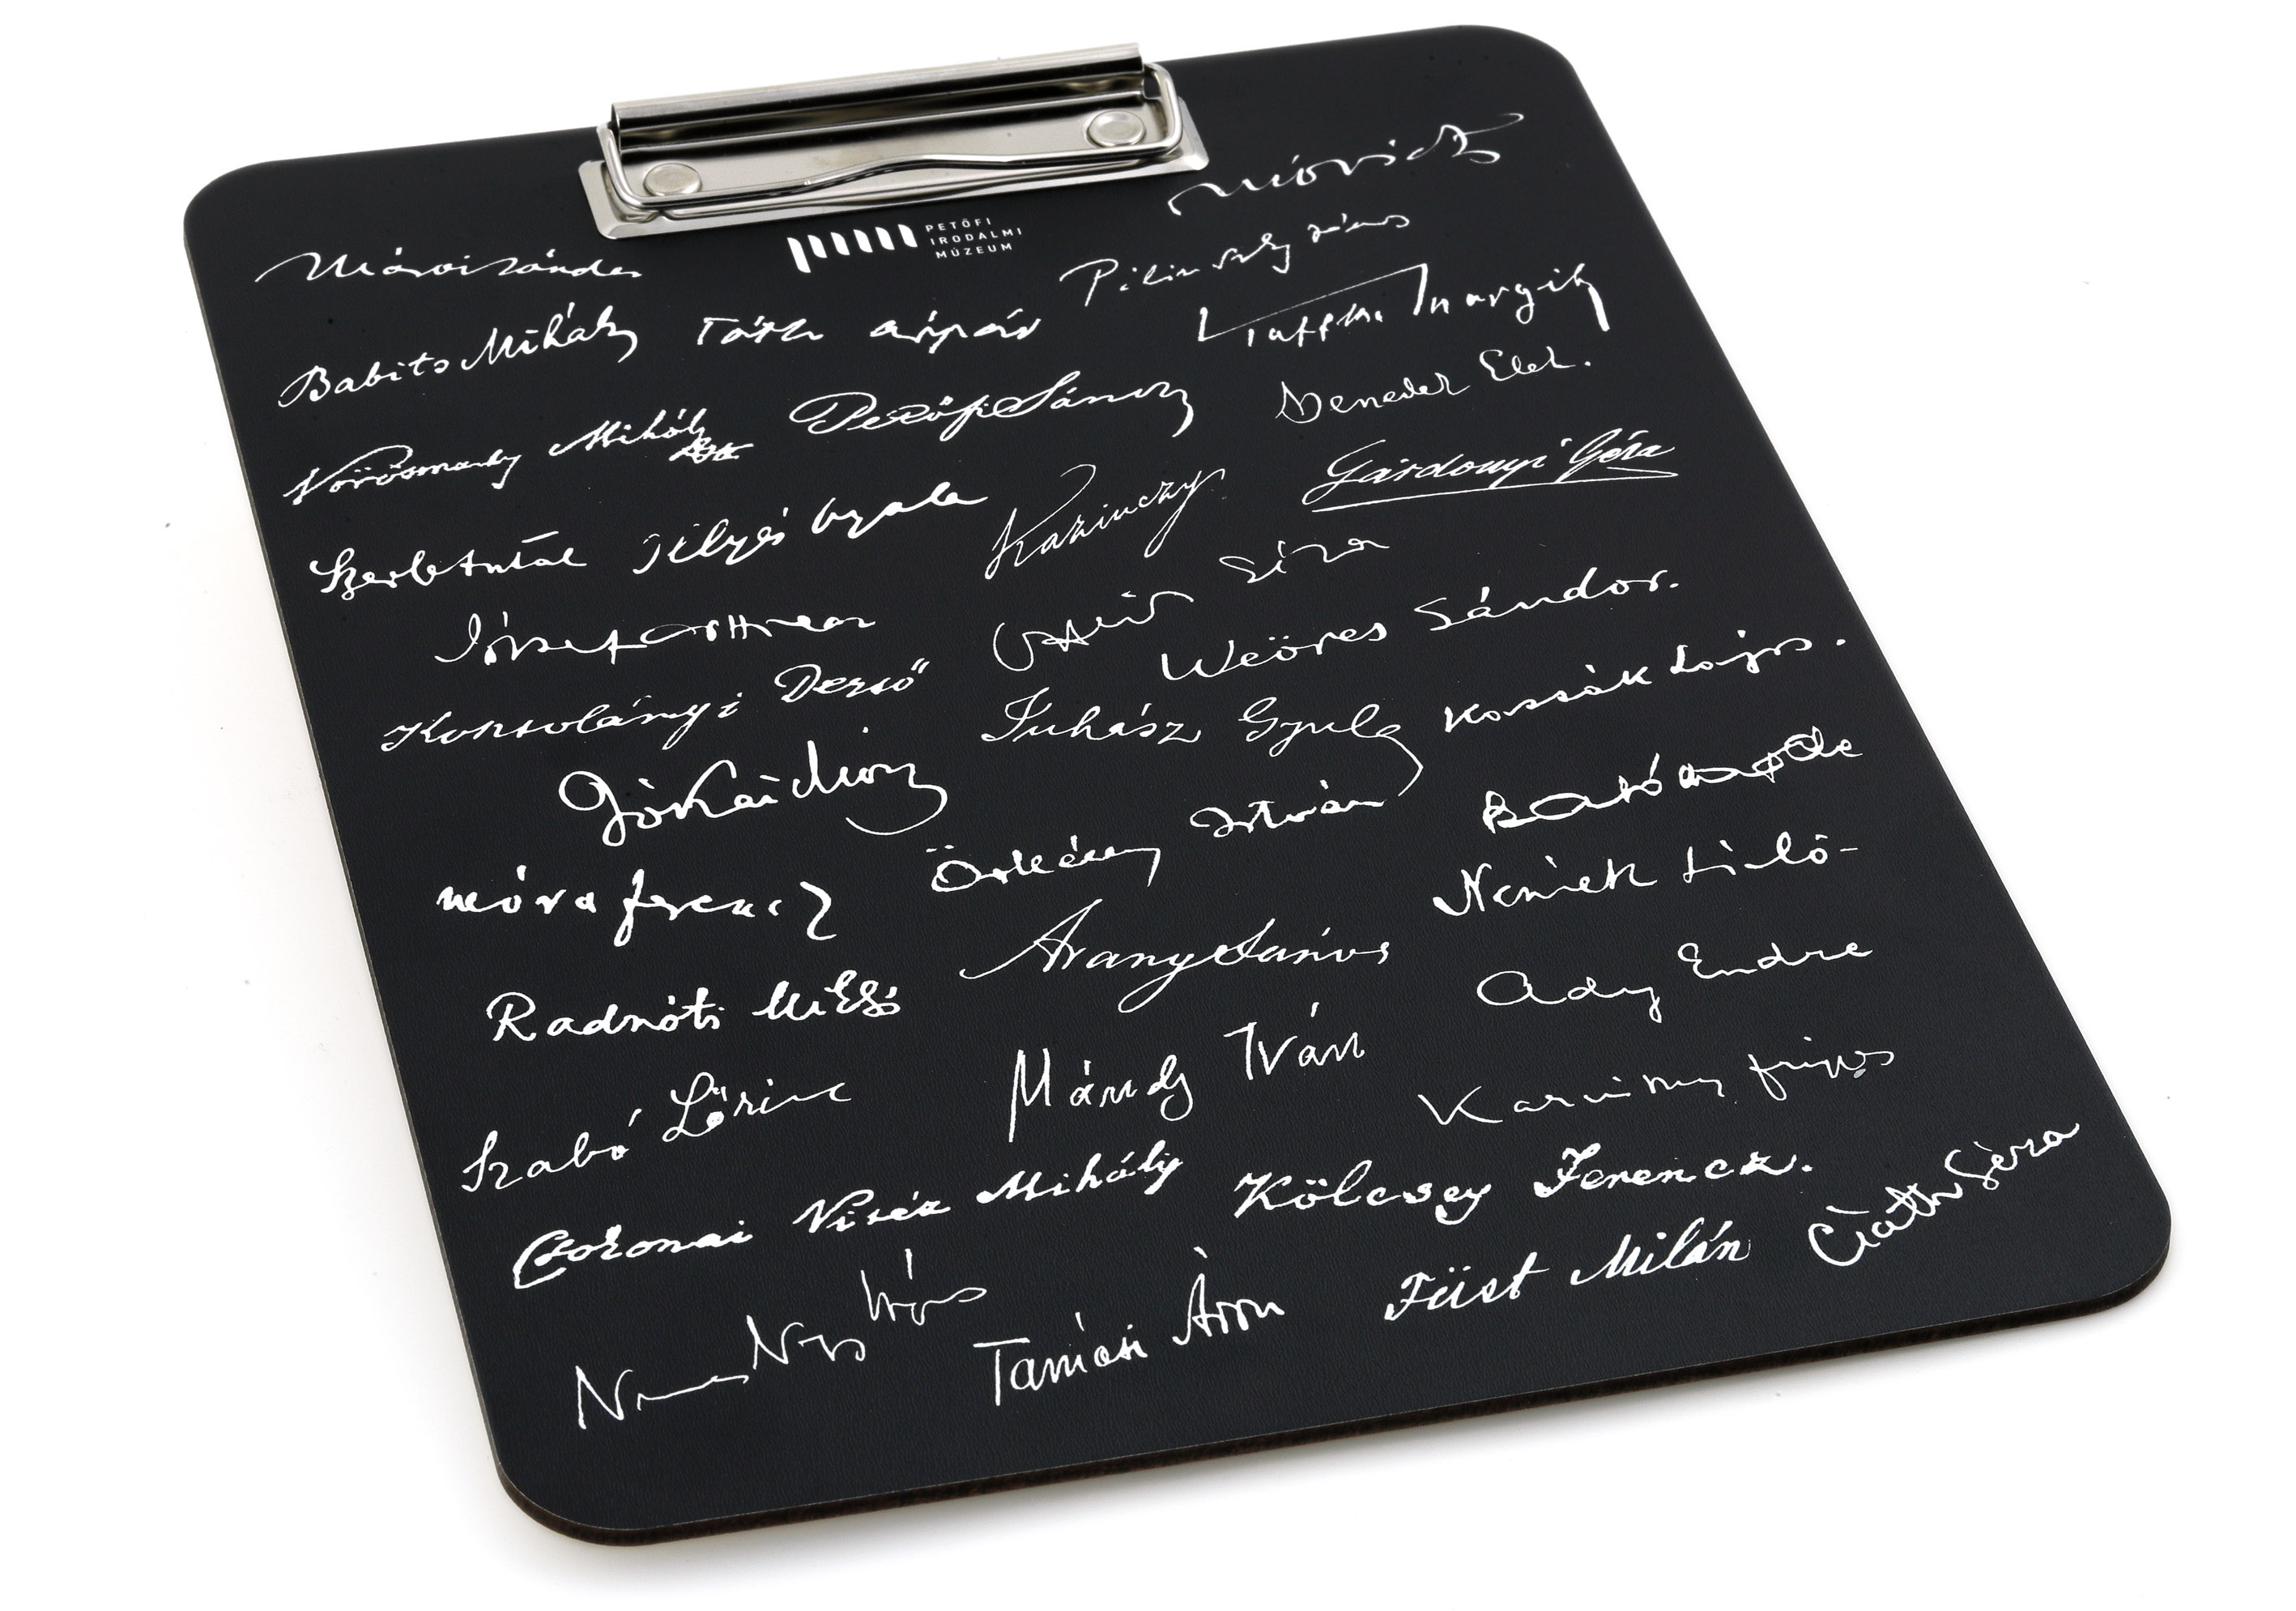 PETŐFI
IRODALMI
MÚZEUM
Móricz
Márai Sándor
Pilinszky János
Babits Mihály
Tóth Árpád
Kaffka Margit
Vörösmarty Mihály
Petőfi Sándor
Benedek Elek.
Szerb Antal
Illyés Gyula
Kazinczy
Gárdonyi Géza
József Attila
Géza
Weöres Sándor.
Kosztolányi Dezső
Juhász Gyula
Kassák Lajos.
Jókai Mór
Örkény István
Móra Ferencz
Arany János
Németh László
Radnóti Miklós
Mándy Iván
Ady Endre
Szabó Lőrinc
Karinthy Frigyes
Csokonai Vitéz Mihály
Kölcsey Ferencz.
Csáth Géza
Nemes Nagy Ágnes
Tamási Áron
Füst Milán